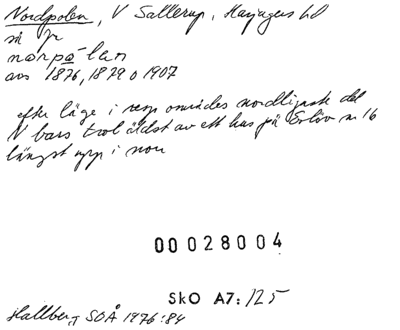 Nordpolen, V Sallerup, Harjagers hd
si pr
norpo-len
avs 1876, 1879 o 1907
efter läge i resp områdes nordligaste del
V bars trol äldst av ett hus på Erlöv nr 16
längst upp i norr
00028004
SkO A7: 125
Hallberg SOÅ 1976:84